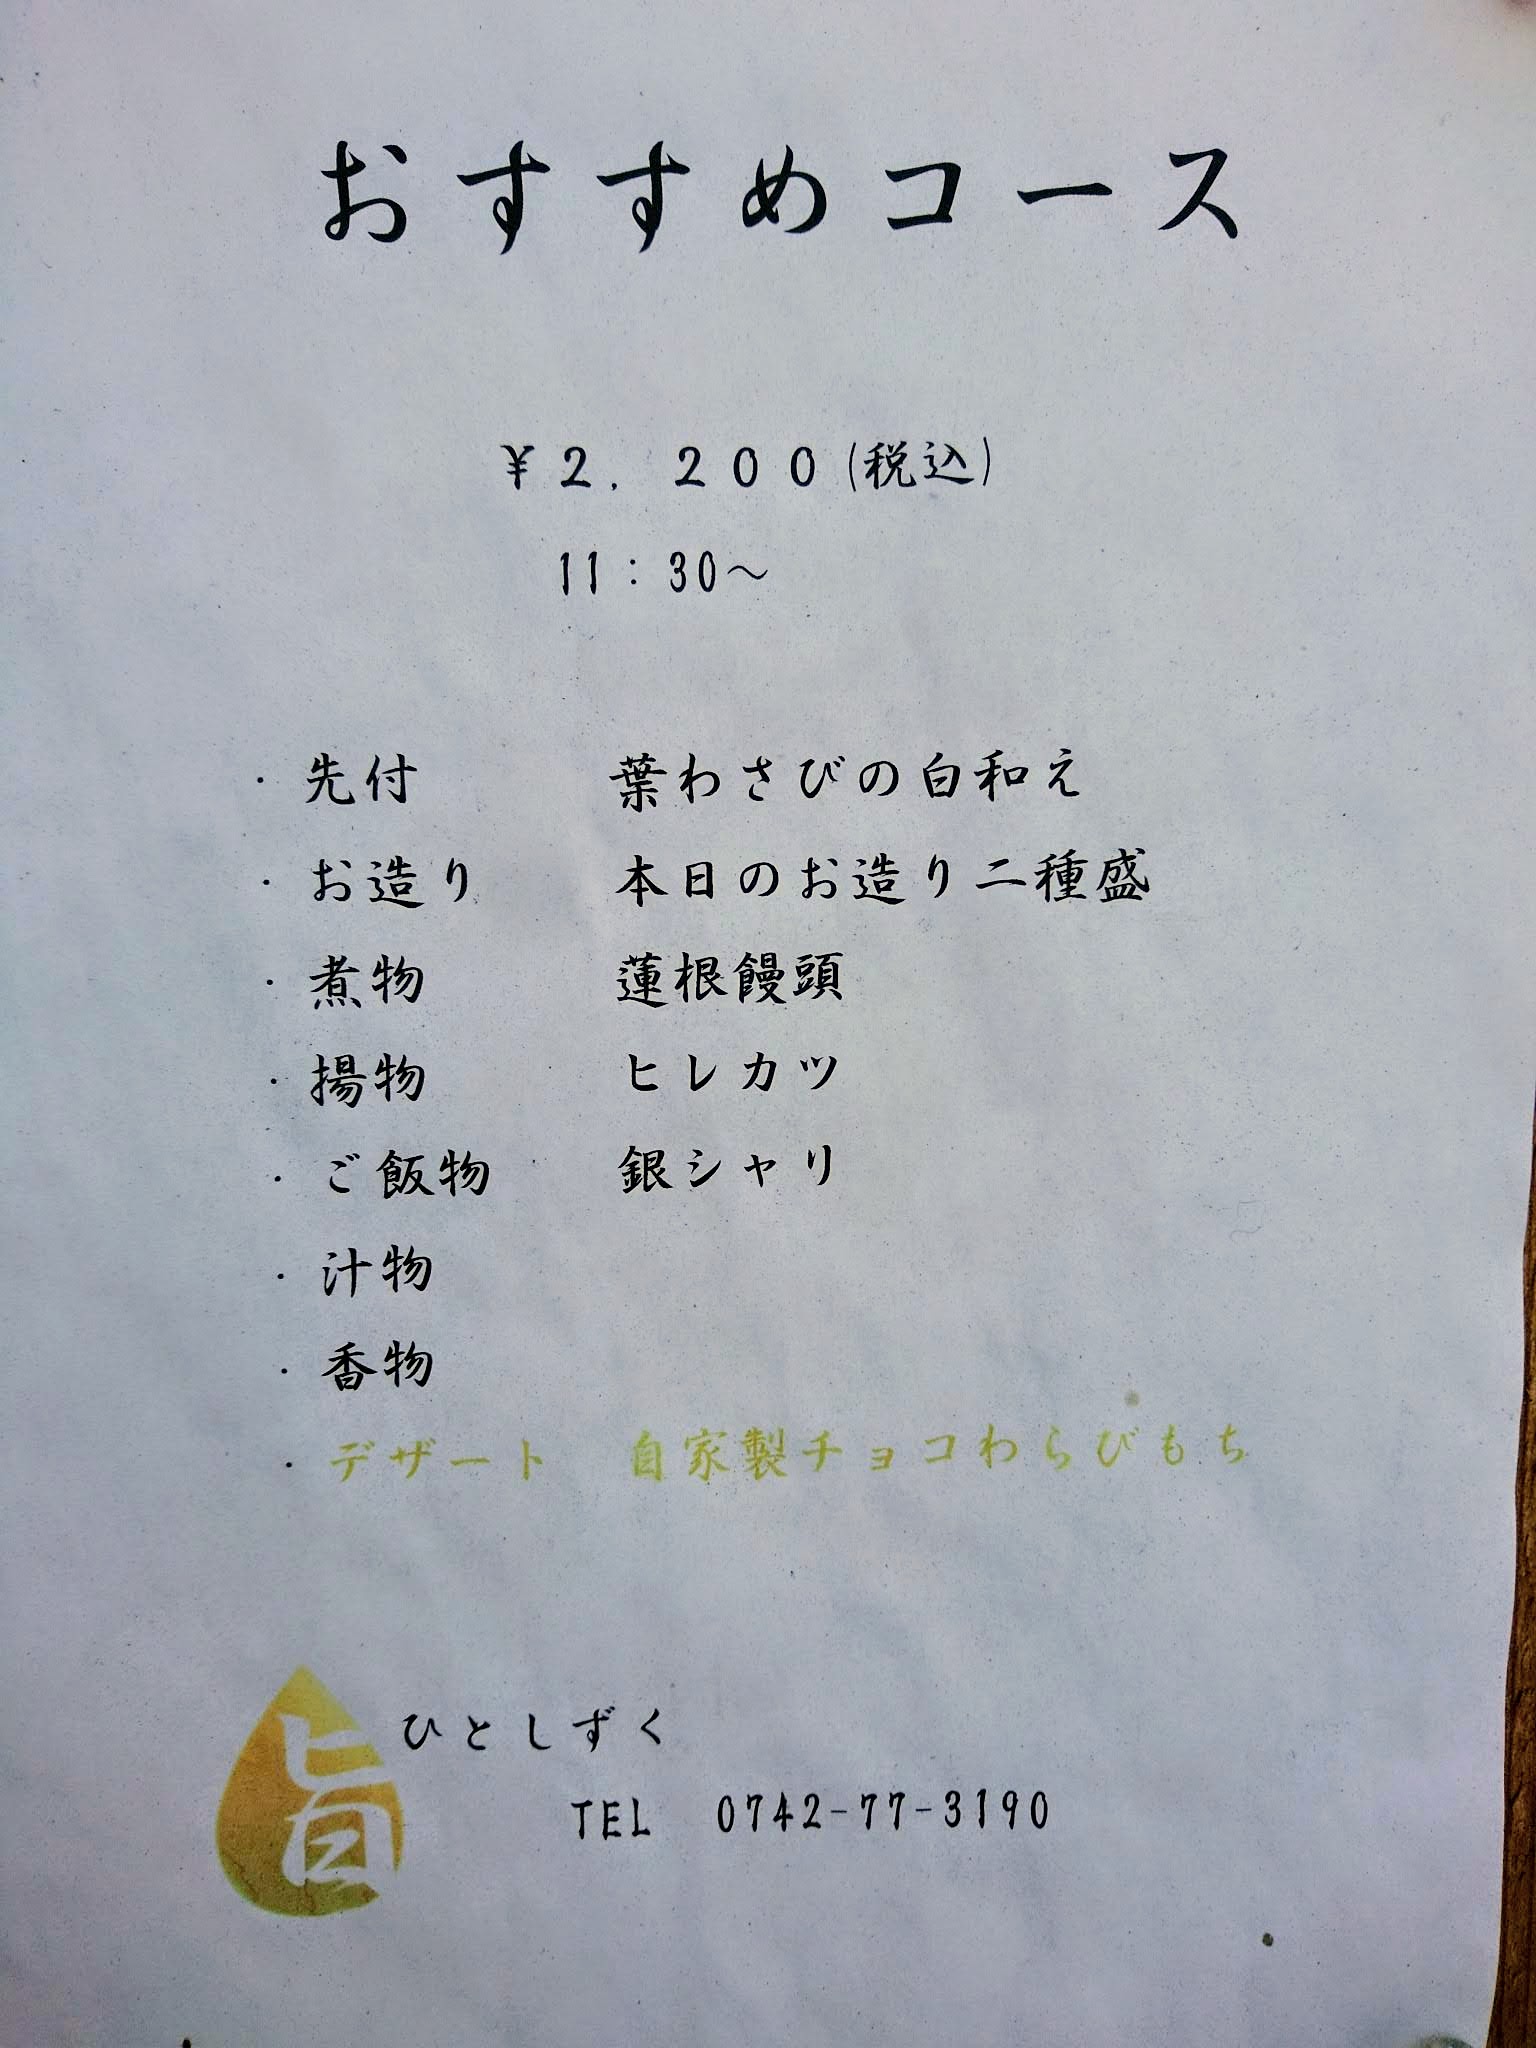 おすすめコース
¥2,200(税込)
11:30〜
・先付 葉わさびの白和え
・お造り 本日のお造り二種盛
・煮物 蓮根饅頭
・揚物 ヒレカツ
・ご飯物 銀シャリ
・汁物
・香物
・デザート 自家製チョコわらびもち
旨 ひとしずく
TEL 0742-77-3190